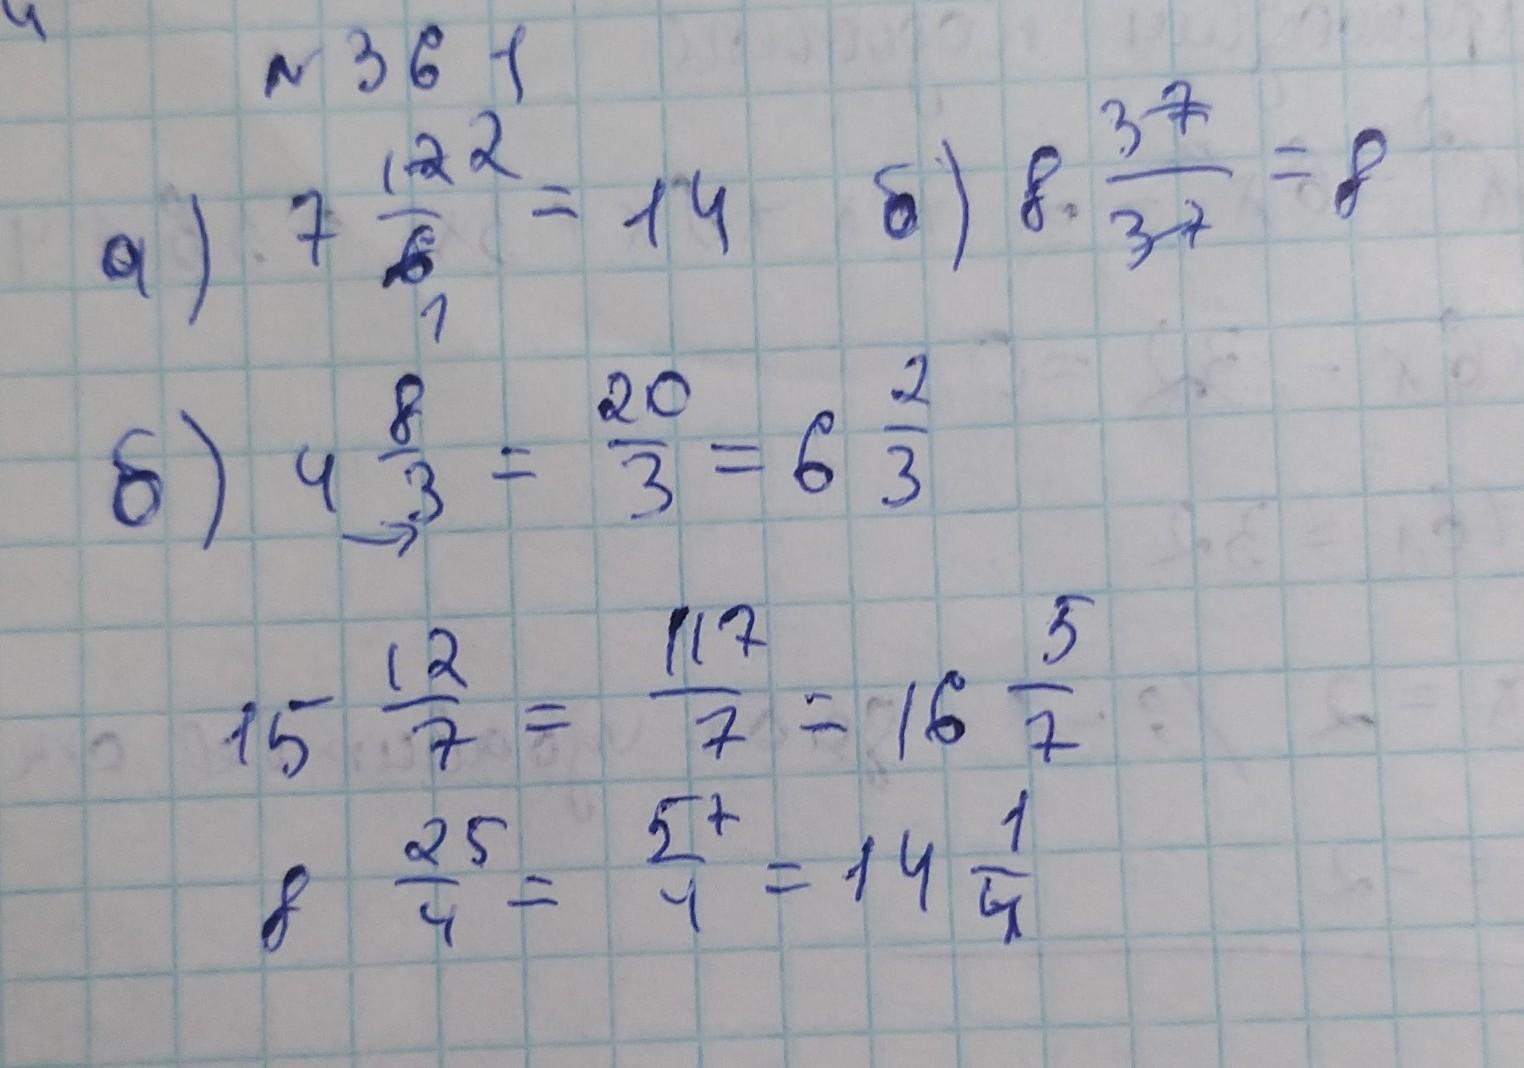 ч
№ 361
а) 7 12/6 2 1 = 14 б) 8 · 37/37 = 8
б) 4 8/3 = 20/3 = 6 2/3
15 12/7 = 117/7 = 16 5/7
8 25/4 = 57/4 = 14 1/4